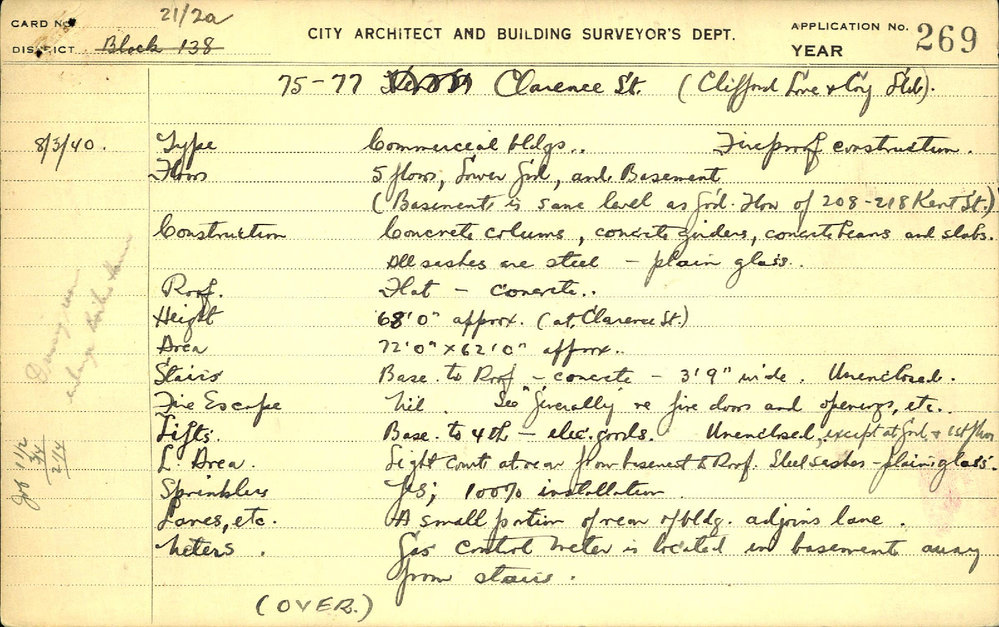 CARD No. 21/2a
DISTRICT Block 138
CITY ARCHITECT AND BUILDING SURVEYOR'S DEPT.
APPLICATION No. 269
YEAR
75-77 Clarence St. (Clifford Love & Coy Ltd).
8/3/40. Type Commercial bldgs.. Fireproof construction.
Floors 5 floors, Lower Grd, and Basement
(Basement is same level as Grd. Floor of 208-218 Kent St.)
Construction Concrete colums, concrete girders, concrete beams and slabs.
All sashes are steel - plain glass..
Roof. Flat - concrete..
Height 68'0" approx. (at Clarence St.)
Area 72'0" x 62'0" approx..
Stairs Base. to Roof - concrete - 3'9" wide. Unenclosed.
Fire Escape Nil. See "Generally" re fire doors and openings, etc..
Lifts. Base. to 4th - elec. goods. Unenclosed, except at Grd. & 1st floor
L. Area. Light Court at rear from basement to Roof. Steel sashes - plain glass.
Sprinklers Yes; 100% installation
Lanes, etc. A small portion of rear of bldg. adjoins lane.
Meters. Gas control meter is located in basement away
from stairs.
(OVER.)